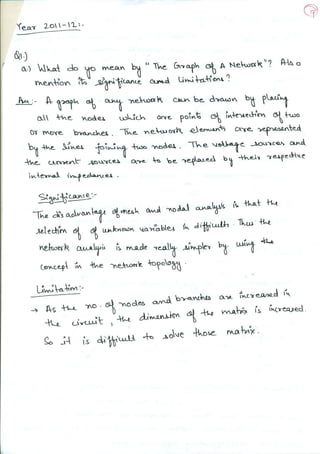 Year 2011-12:-
Q1.)
a.) What do yo mean by "The Graph of A Network"? Also
mention its significance and limitations?
Ans:- A graph of any network can be drawn by placing
all the nodes which are points of intersection of two
or more branches. The network elements are represented
by the lines joining two nodes. The voltage sources and
the current sources are to be replaced by their respective
internal impedances.
Significance:-
The disadvantage of mesh and nodal analysis is that the
selection of of unknown variables is difficult. Thus the
network analysis is made really simpler by using the
concept in the network topology.
Limitation:-
→ As the no. of nodes and branches are increased in
the circuit, the dimension of the matrix is increased.
So it is difficult to solve those matrix.